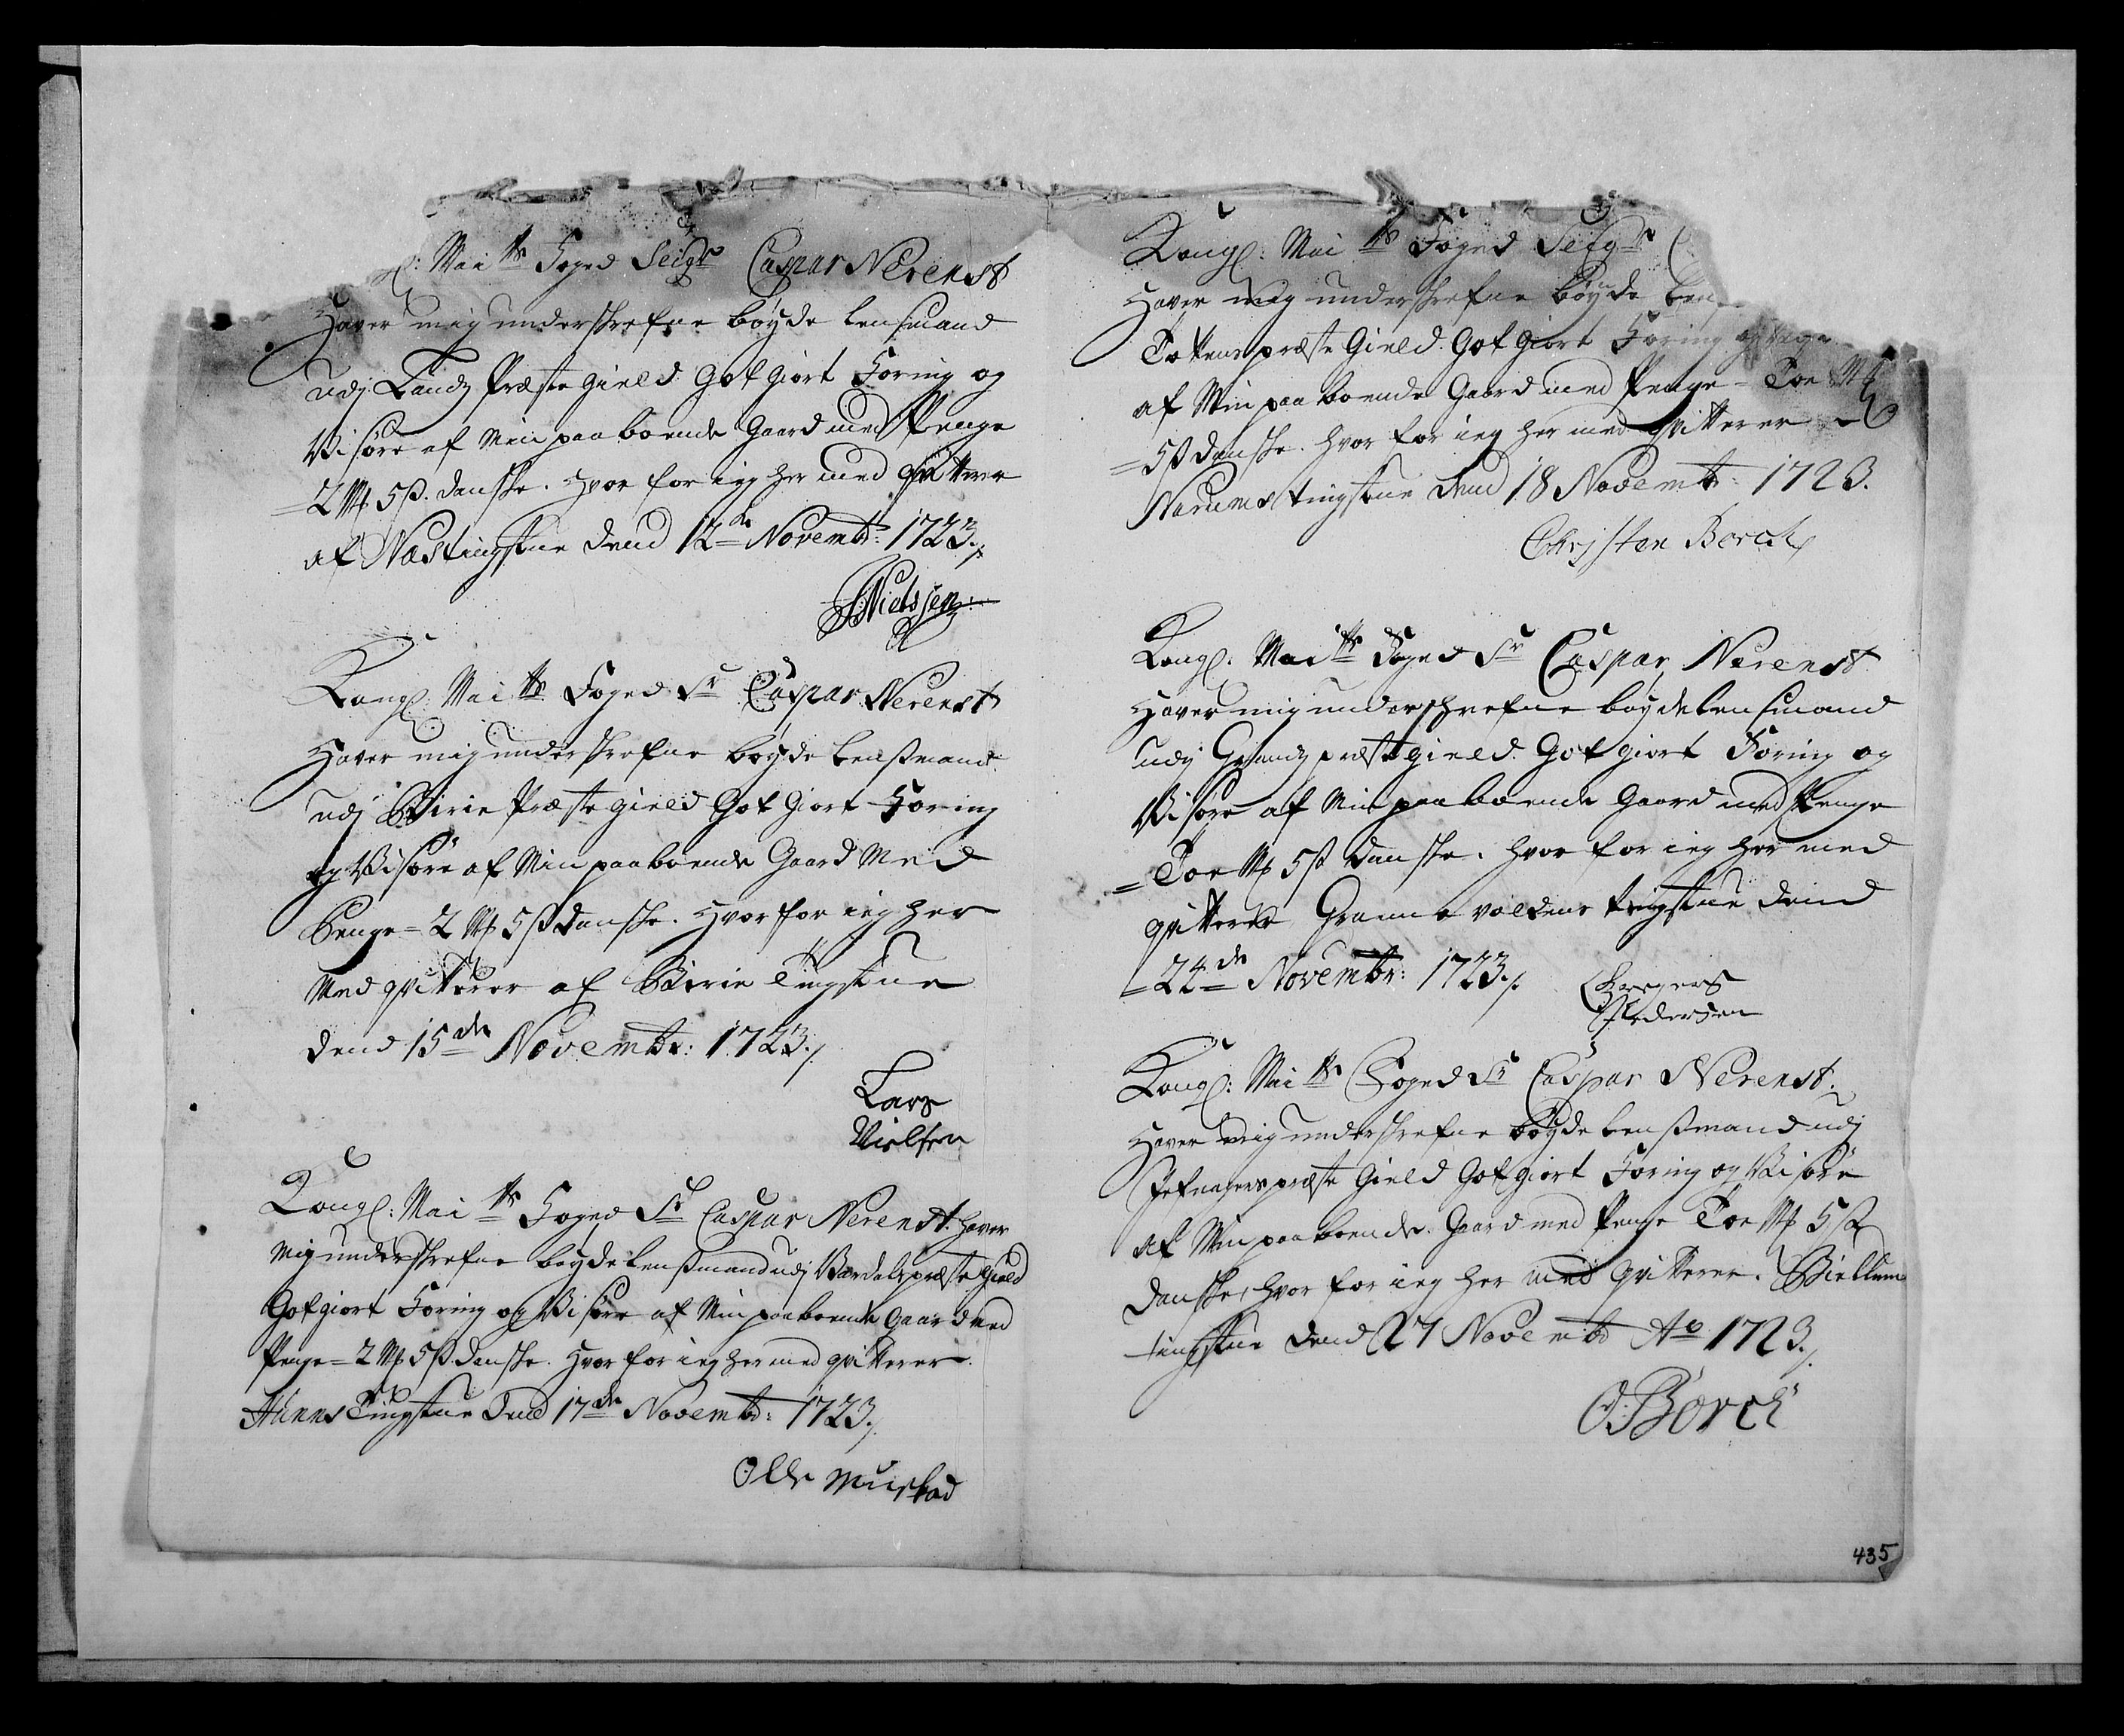 : Mai ᵗᵗˢ Foged Seigr Caspar Nerenst
Hafver mig underskrefne böyde lensmand
udj Landz Præste gield Got giort Foring og
Visöre af Min paa boende Gaard med Penge
= 2 Mk 5 ß. danske. Hvor for ieg her med qvitterer
af Næs tingstue Dend 12te Novembr: 1723./.
Nielssen:
Kongl: Mai tts Foged Sr Caspar Nerenst
Hafver mig underskrefne böyde lenßmand
udj Birie Præste gield Got Giort Foring
og Visöre af Min paaboende Gaard Med
Penge = 2 Mk 5 ß danske. Hvor for ieg her
Med qvitterer af Birie Tingstue
Dend 15de Novembr: 1723./.
Lars
Nielsen
Kongl: Mai tts Foged Sr Caspar Nerenst. hafver
Mig underskrefne böyde lenßmand udj Vardals præste gield
Got giort Foring og Visöre af Min paaboende Gaard med
Penge = 2 Mk 5 ß. danske. Hvor for ieg her med qvitterer.
Hunns Tingstue Dend 17de Novembr: 1723./.
Olle Mustad
Kongl: Mai tts Foged Seigr C
Hafver mig underskrefne böyde len
Totens præste Gield. Got Giort Foring og
af Min paa boende Gaard med Penge = Toe Mk
= 5 ß danske. Hvor for ieg her med qvitterer
Narums tingstue Dend 18 Novembr: 1723.
Christen Borch
Kongl: Mai tts Foged Sr Caspar Nerenst
Hafver mig underskrefne böyde lensmand
udj Grandz præste gield. Got giort Foring og
Visöre af Min paa boende Gaard med Penge
= Toe Mk 5 ß danske. Hvor for ieg her med
qvitterer Granna voldens tingstue Dend
= 24de Novembr: 1723./.
Gregers
Pedersen
Kongl: Mai tts Foged Sr Caspar Nerenst:
Hafver mig underskrefne böyde lenßmand udj
Jefnagers præste Gield Got giort Foring og Visöre
af Min paa boende. Gaard med Penge Toe Mk 5 ß
danske, Hvor for ieg her med qvitterer. Biellum
tingstue Dend 27 Novembr Ao 1723./.
O: Börch
435